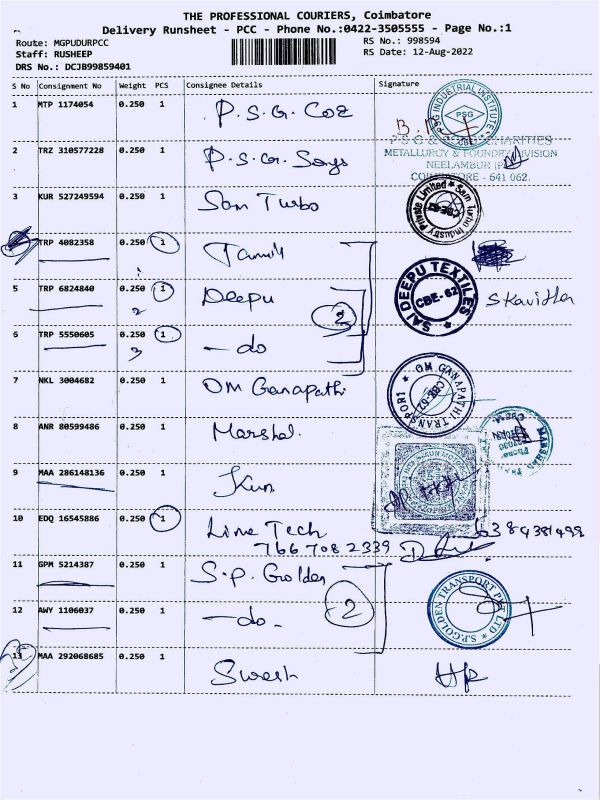 THE PROFESSIONAL COURIERS, Coimbatore
Delivery Runsheet - PCC - Phone No.:0422-3505555 - Page No.:1
Route: MGPUDURPCC RS No.: 998594
Staff: RUSHEEP RS Date: 12-Aug-2022
DRS No.: DCJB99859401
S No Consignment No Weight PCS Consignee Details Signature
1 MTP 1174054 0.250 1 P.S.G. COE
PSG INDUSTRIAL INSTITUTE
PSG
2 TRZ 310577228 0.250 1 P.S.G. Sons
CHARITIES
METALLURGY & FOUNDRY DIVISION
NEELAMBUR
COIMBATORE - 641 062.
3 KUR 527249594 0.250 1 Sam Turbo
Sam Turbo Industry Private Limited
TRP 4082358 0.250 1 Tamil
5 TRP 6824840 0.250 1 Deepu
2
2
SAI DEEPU TEXTILES
CBE-62
S Kavitha
6 TRP 5550605 0.250 1 - do
3
7 NKL 3004682 0.250 1 OM Ganapathi
OM GANAPATHI TRANSPORT
CBE-62
8 ANR 80599486 0.250 1 Marshal.
9 MAA 286148136 0.250 1
10 EDQ 16545886 0.250 1 Line Tech
766 708 2339
11 GPM 5214387 0.250 1 S.P. Golden
2
S.P.GOLDEN TRANSPORT PVT LTD
12 AWY 1106037 0.250 1 - do.
13 MAA 292068685 0.250 1